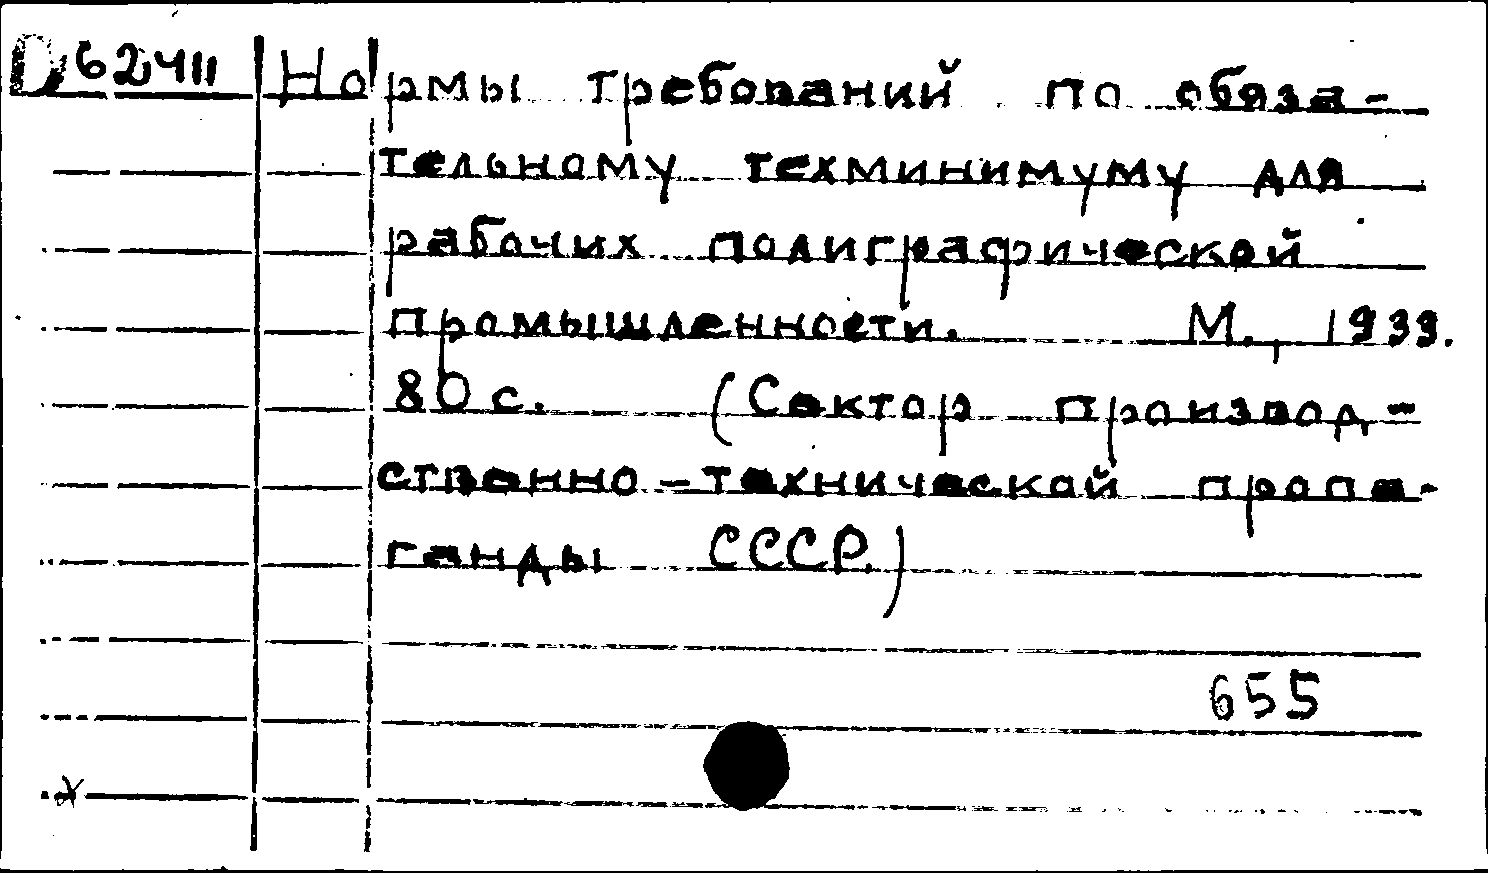 D 62411 Нормы требований по обяза-
тельному техминимуму для
рабочих полиграфической
промышленности. М., 1933.
80 с. (Сектор производ-
ственно-технической пропа-
ганды СССР.)
655